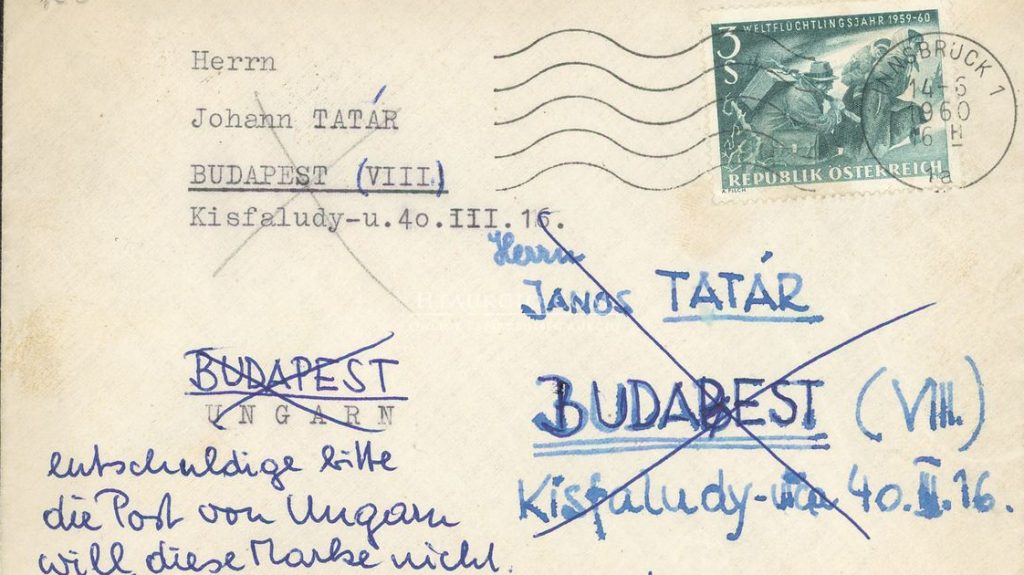 Herrn
Johann TATÁR
BUDAPEST (VIII.)
Kisfaludy-u.4o.III.16.
BUDAPEST
UNGARN
entschuldige bitte
die Post von Ungarn
will diese Marke nicht.
WELTFLÜCHTLINGSJAHR 1959-60
3
S
REPUBLIK ÖSTERREICH
INNSBRUCK 1
14-6
1960
16 H
1a
Herrn
JANOS TATÁR
BUDAPEST (VIII.)
Kisfaludy- 40.II.16.